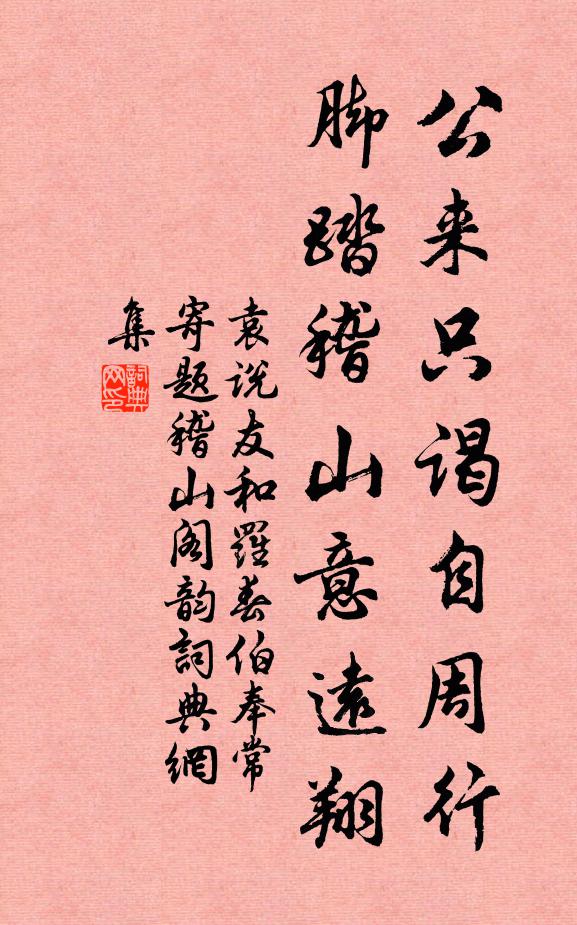 公来只谒自周行
脚踏稽山意遠翔
袁说友和羅春伯奉常
寄题稽山阁韵詞典網
集
詞典
网印